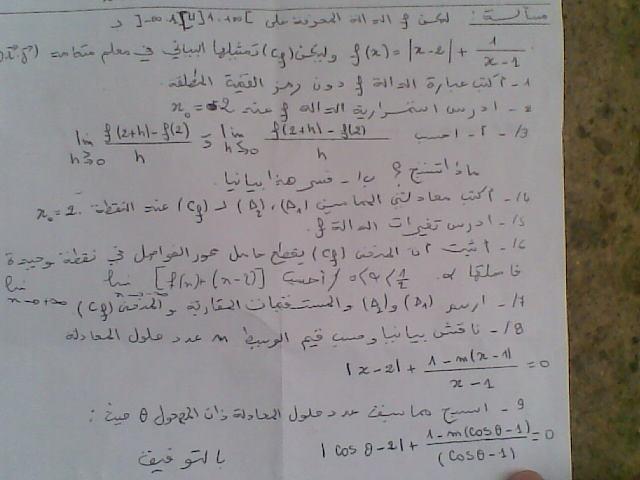 مسألة: لتكن f الدالة المعرفة على ]-∞,1[∪]1,+∞[ كـ
f(x) = |x-2| + 1/(x-1) وليكن (Cf) تمثيلها البياني في معلم متعامد
1- أكتب عبارة الدالة f دون رمز القيمة المطلقة
2- ادرس استمرارية الدالة f عند x₀ = 2
3/- أ- احسب lim h≥0 (f(2+h)-f(2))/h و lim h≤0 (f(2+h)-f(2))/h
ماذا تستنتج ؟ ب/- فسر هذا بيانيا.
4/- أكتب معادلتي المماسين (Δ1)، (Δ2) لـ (Cf) عند النقطة x₀ = 2.
5/- ادرس تغيرات الدالة f.
6/- أثبت أن المنحنى (Cf) يقطع حامل محور الفواصل في نقطة وحيدة
فاصلتها α 0<α<1/2 / أحسب lim [f(x)+(x-2)] lim x→+∞
7/- ارسم (Δ1) و(Δ2) والمستقيمات المقاربة والمنحنى (Cf)
8/- ناقش بيانيا وحسب قيم الوسيط m عدد حلول المعادلة
|x-2| + (1-m(x-1))/(x-1) = 0
9- استنتج مما سبق عدد حلول المعادلة ذات المجهول θ حيث:
|cosθ-2| + (1-m(cosθ-1))/(cosθ-1) = 0
بالتوفيق